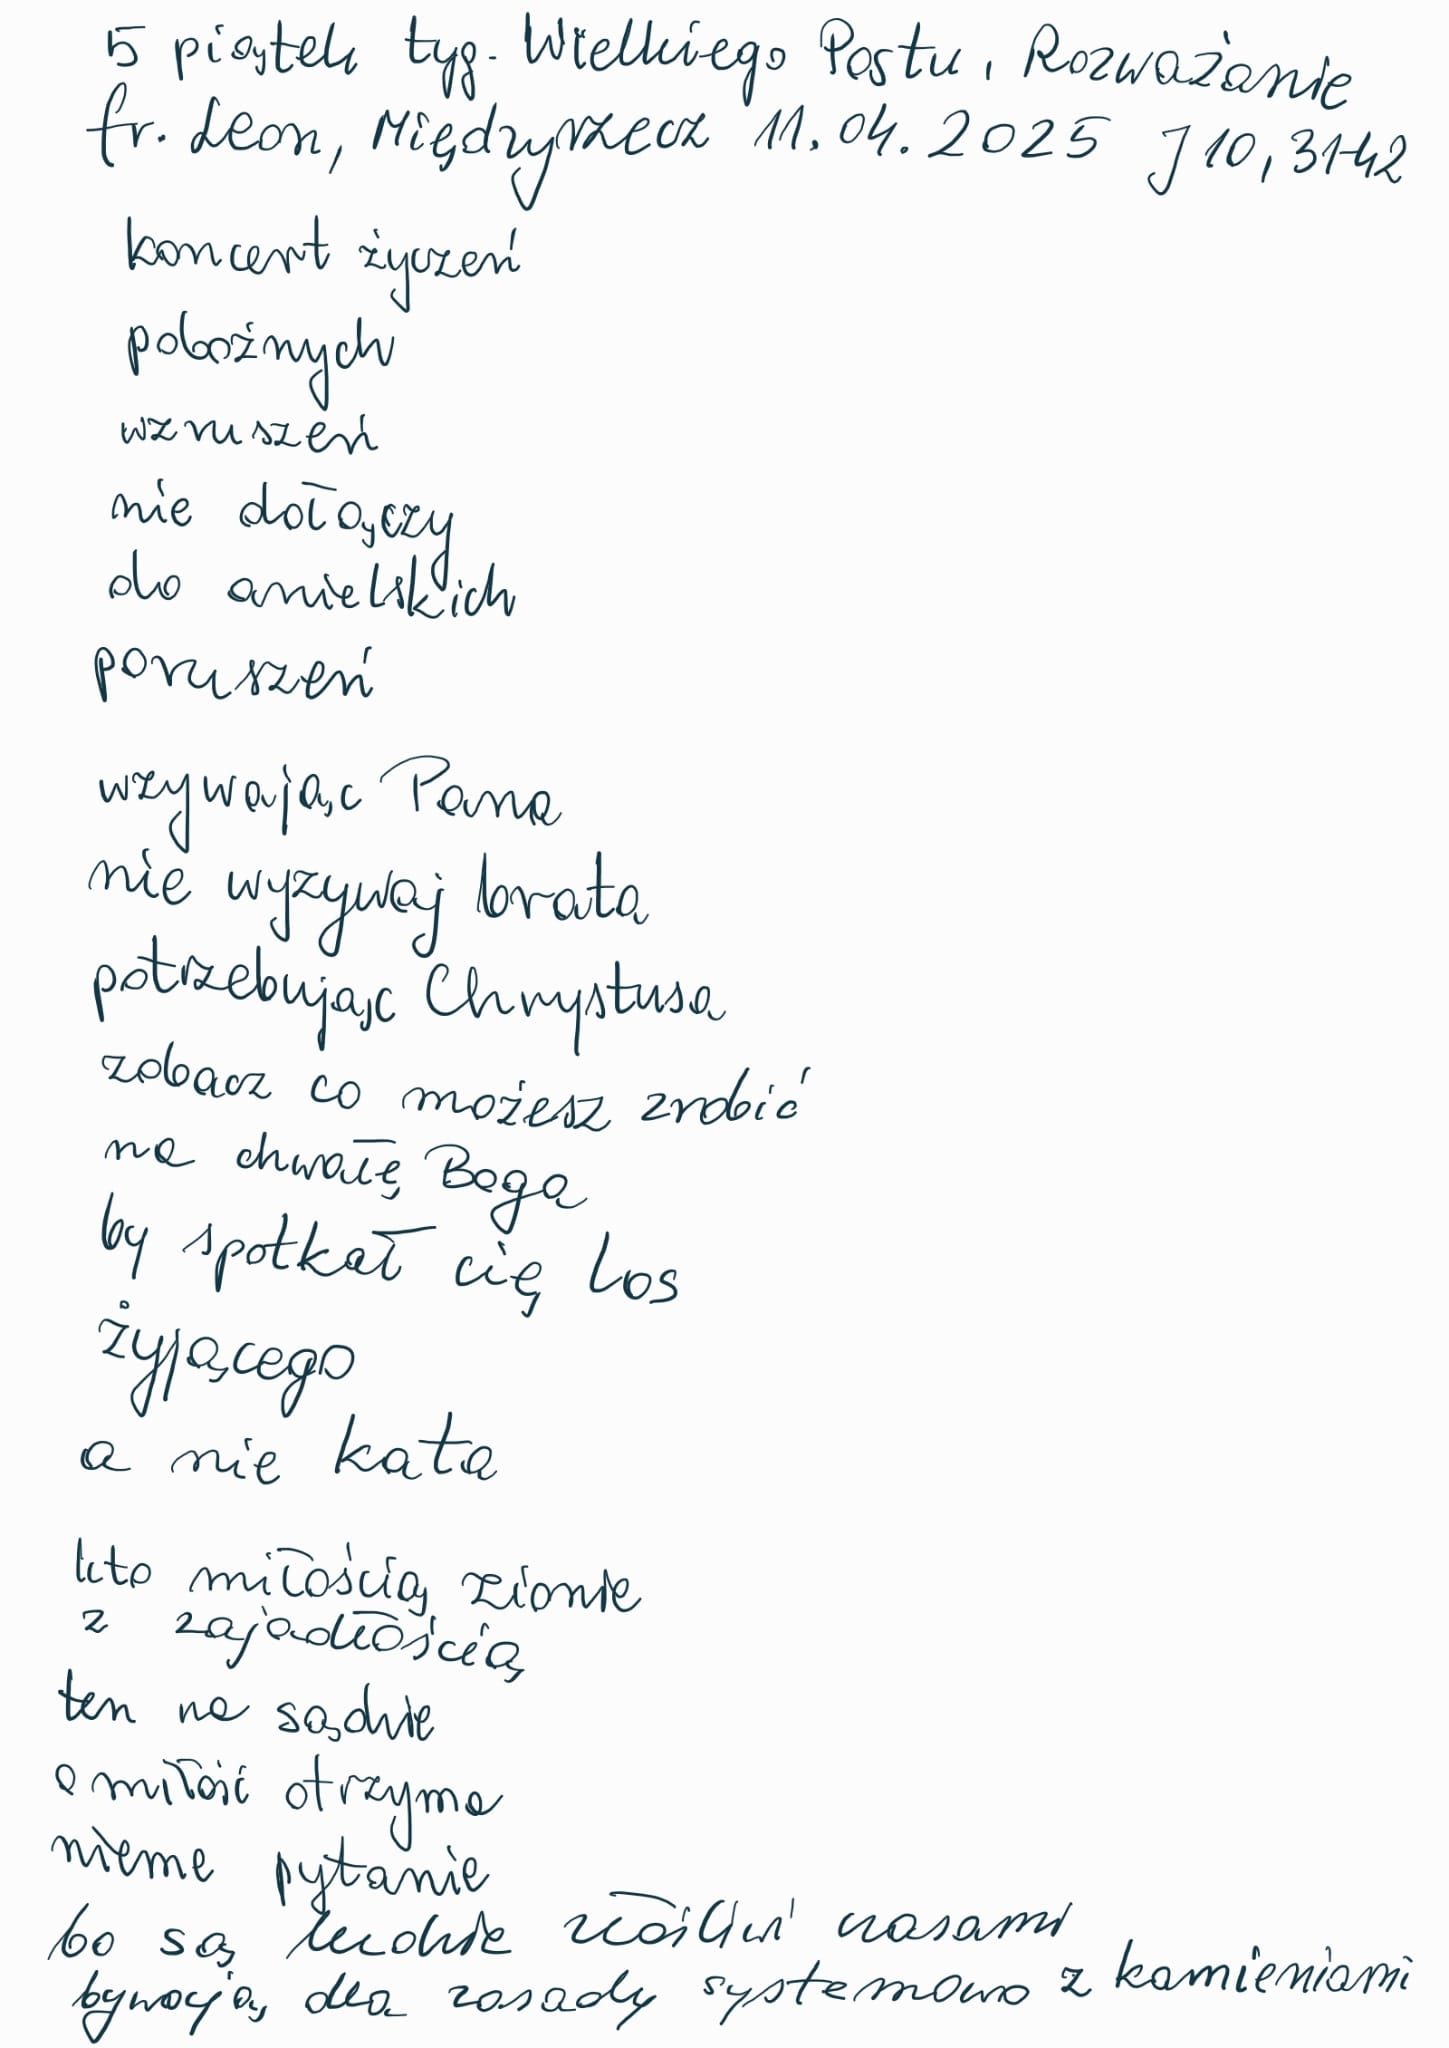 5 piątek tyg. Wielkiego Postu, Rozważanie
fr. Leon, Międzyrzecz 11.04.2025 J 10,31-42
koncert życzeń
pobożnych
wzruszeń
nie dołączy
do anielskich
poruszeń
wzywając Pana
nie wyzywaj brata
potrzebując Chrystusa
zobacz co możesz zrobić
na chwałę Boga
by spotkał cię los
żyjącego
a nie kata
kto miłością zionie
z zajadłością
ten na sądzie
o miłość otrzyma
nieme pytanie
bo są ludzie złośliwi czasami
bywają dla zasady systemowo z kamieniami